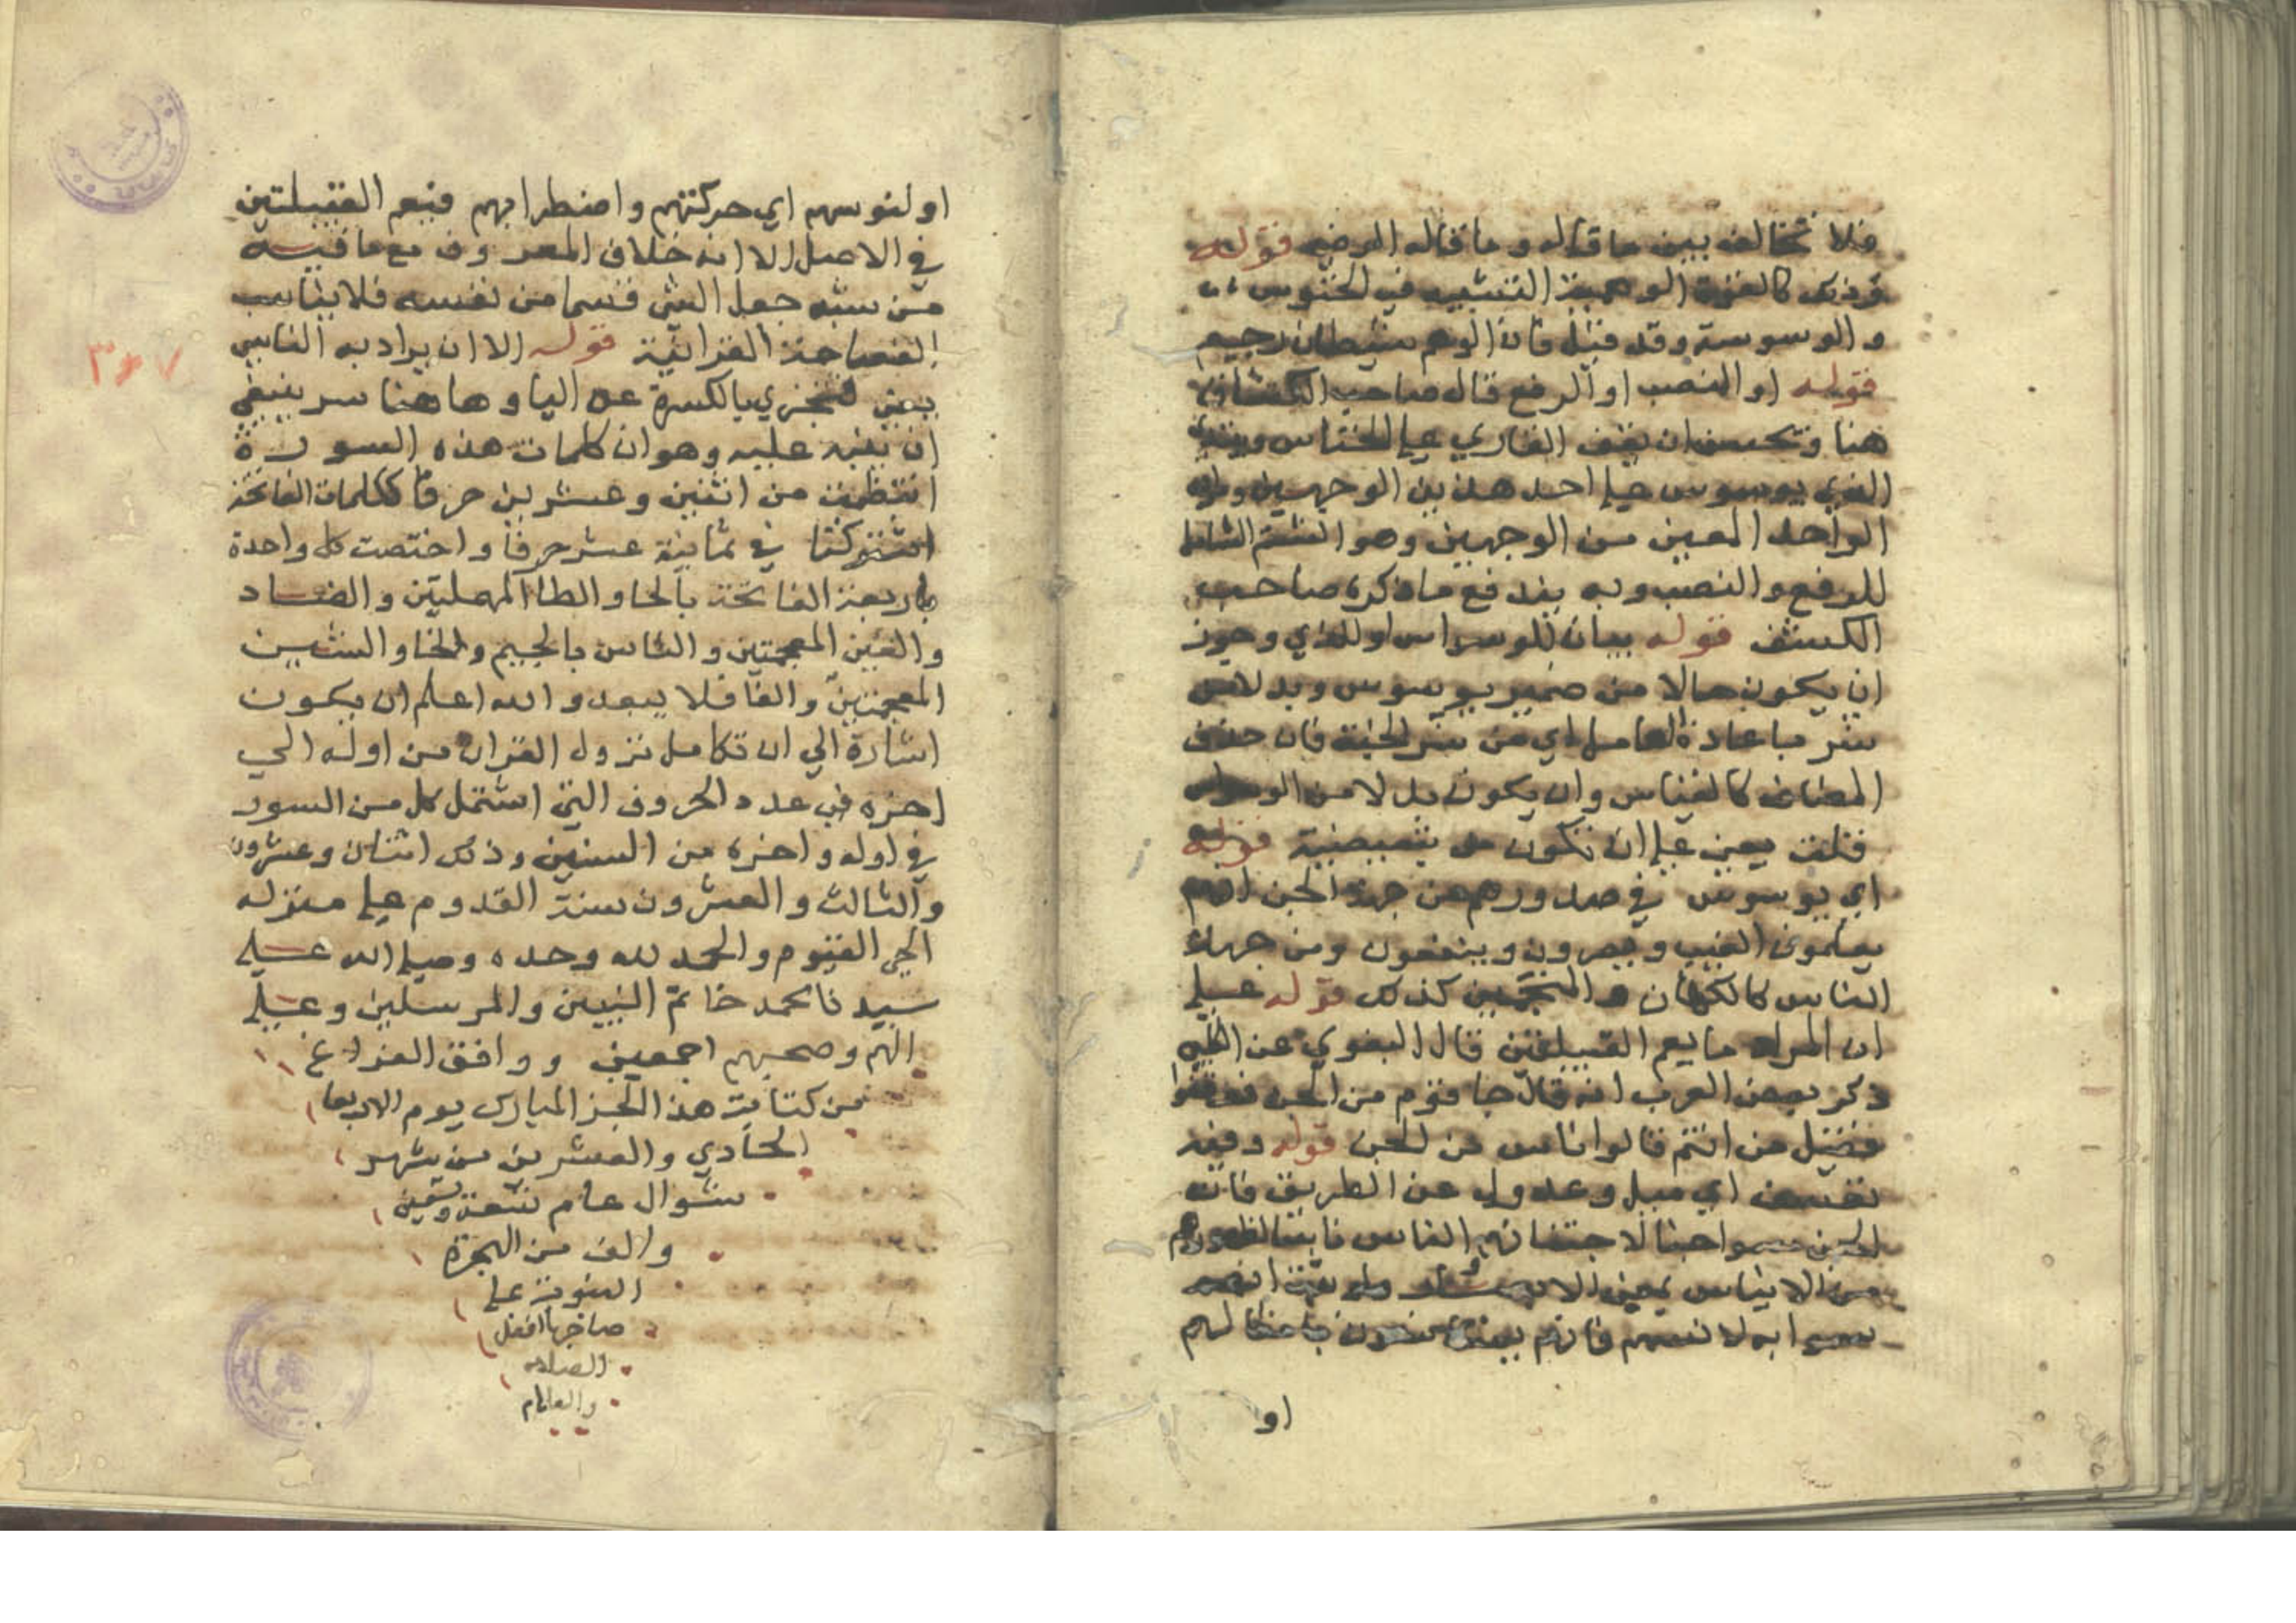 فلا تخالف بين ما قاله وما قاله الرضي قوله
وذلك كالقوة الوهمية التشبيه في الخنوس
والوسوسة وقد قيل فان الوهم شيطان رجيم
قوله او النصب او الرفع قال صاحب الكشاف
هنا ويحسن ان يقف القاري علي الخناس ويبتدي
الذي يوسوس علي احد هذين الوجهين
الواحد المعين من الوجهين وهو الشتم الشامل
للرفع والنصب وبه يندفع ما ذكره صاحب
الكشف قوله بيان للوسواس او للذي وجوز
ان يكون حالا من ضمير يوسوس وبدلا من
شر باعادة العامل اي من شر الجنة فان حذف
المضاف كالفياس وان يكون بدلا من الوسواس
قلت يعني علي ان تكون من تبعيضية قوله
اي يوسوس في صدورهم من جهة الجن انهم
يعلمون الغيب ويضرون وينفعون ومن جهة
الناس كالكهان والمنجمين كذلك قوله علي
ان المراد ما يعم القبيلتين قال البغوي عن
ذكر بعض العرب انه قال جا قوم من الجن فوقفوا
فقيل من انتم قالوا ناس من الجن قوله وفيه
تعسف اي ميل وعدول عن الطريق فان
الجن سموا جنا لاجتنانهم الناس
من الايناس بمعني
سموا به لانسهم فانهم
او
او لنوسهم اي حركتهم واضطرابهم فيعم القبيلتين
في الاصل الا انه خلاف المعروف مع ما فيه
من شبه جعل الشي قسما من نفسه فلا يناسب
الفصاحة القرانية قوله الا ان يراد به الناسي
يعني فتجزي بالكسرة عن اليا وها هنا سر ينبغي
ان ينبه عليه وهو ان كلمات هذه السورة
انتظمت من اثنين وعشرين حرفا ككلمات الفاتحة
اشتركتا في ثمانية عشر حرفا واختصت كل واحدة
باربعة الفاتحة بالحا والطا المهملتين والضاد
والغين المعجمتين والناس بالجيم والخا والشين
المعجمتين والفا فلا يبعد والله اعلم ان يكون
اشارة الي ان تكامل نزول القران من اوله الي
اخره في عدد الحروف التي اشتمل كل من السور
في اوله واخره من السنين وذلك اثنان وعشرون
والثالث والعشرون سنة القدوم علي منزله
الحي القيوم والحمد لله وحده وصلي الله علي
سيدنا محمد خاتم النبيين والمرسلين وعلي
الهم وصحبهم اجمعين ووافق الفراغ
من كتابت هذا الجز المبارك يوم الاربعا
الحادي والعشرين من شهر
شوال عام تسعة وتسعين
والف من الهجرة
النبوية علي
صاحبها افضل
الصلاه
والسلام
٣٦٧